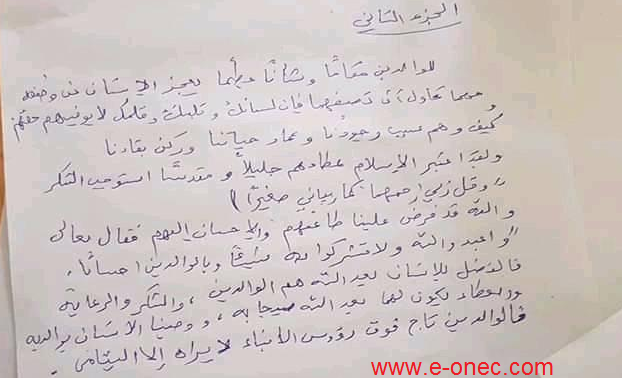 الجزء الثاني
للوالدين مقامًا وشأنًا عظيما يعجز الإنسان عن وصفه
ومهما تحاول أن تصفهما فإن لسانك وقلمك لا يوفيهم حقهم
كيف وهم سبب وجودنا وعماد حياتنا وركن بقائنا
ولقد اعتبر الإسلام عطاءهم جليلاً و مقدسًا استوجب الشكر
"وقل ربي ارحمهما كما ربياني صغيرًا"
والله قد فرض علينا طاعتهم والإحسان إليهم فقال تعالى
"واعبدوالله ولا تشركوا به شيئا وبالوالدين احسانا".
فالفضل للانسان بعد الله هم الوالدين، والشكر والرعاية
والعطاء يكون لهما بعد الله، ووصينا الأنسان بوالديه
فالوالدين تاج فوق رؤوس الأبناء لا يراه إلا اليتامى.
www.e-onec.com